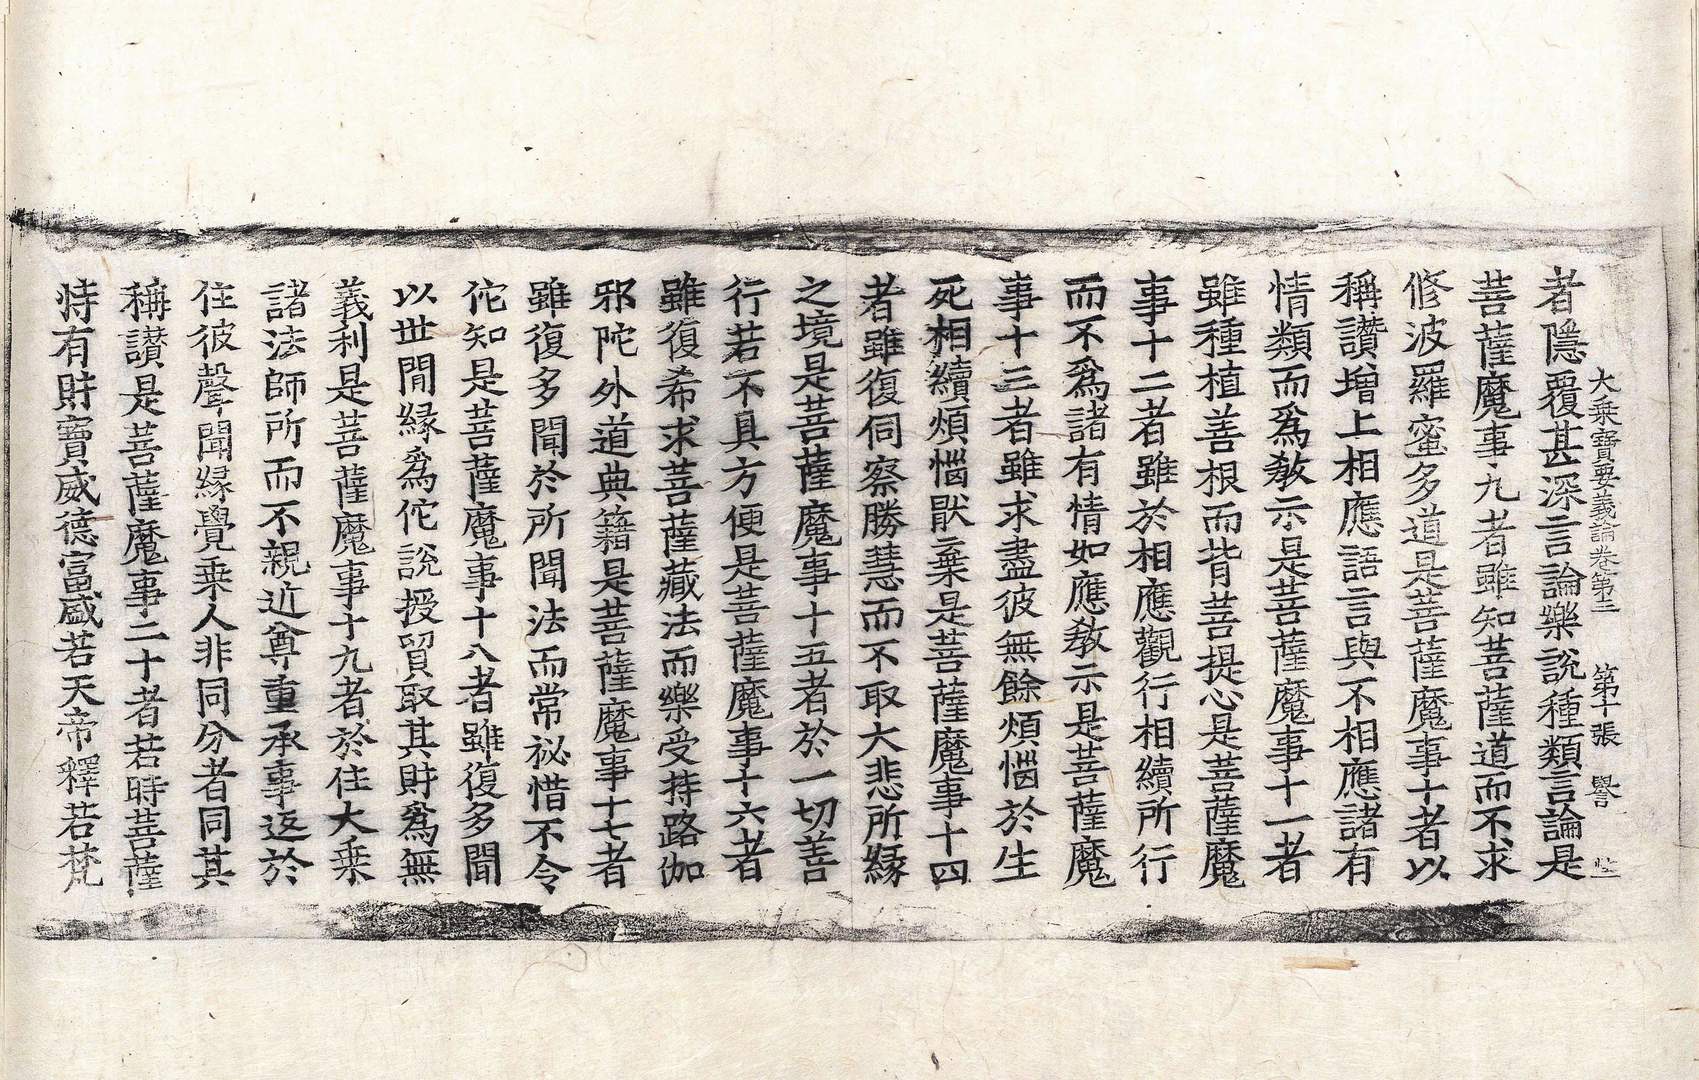 大乘寶要義論卷第三　第十張　譽
者隱覆甚深言論樂說種類言論是
菩薩魔事九者雖知菩薩道而不求
修波羅蜜多道是菩薩魔事十者以
稱讚增上相應語言與不相應諸有
情類而爲教示是菩薩魔事十一者
雖種植善根而背菩提心是菩薩魔
事十二者雖於相應觀行相續所行
而不爲諸有情如應教示是菩薩魔
事十三者雖求盡彼無餘煩惱於生
死相續煩惱猒棄是菩薩魔事十四
者雖復伺察勝慧而不取大悲所緣
之境是菩薩魔事十五者於一切善
行若不具方便是菩薩魔事十六者
雖復希求菩薩藏法而樂受持路伽
邪陀外道典籍是菩薩魔事十七者
雖復多聞於所聞法而常祕惜不令
佗知是菩薩魔事十八者雖復多聞
以世間緣爲佗說授貿取其財爲無
義利是菩薩魔事十九者於住大乘
諸法師所而不親近尊重承事返於
住彼聲聞緣覺乘人非同分者同其
稱讚是菩薩魔事二十者若時菩薩
恃有財寶威德富盛若天帝釋若梵